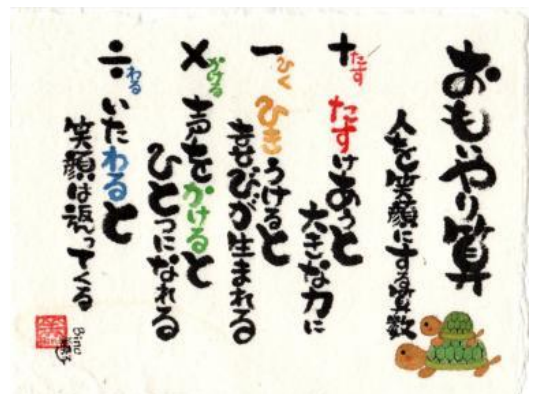 おもいやり算
人を笑顔にする算数
+たす
たすけあうと
大きな力に
−ひく
ひきうけると
喜びが生まれる
×かける
声をかけると
ひとつになれる
÷わる
いたわると
笑顔は返ってくる
Bino